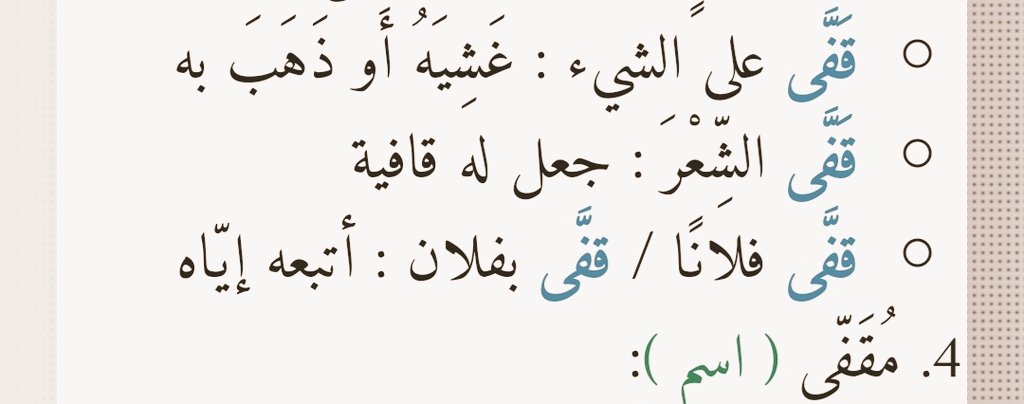 ○ قَفَّى على الشيء : غَشِيَهُ أَو ذَهَبَ به
○ قَفَّى الشِّعْرَ : جعل له قافية
○ قفَّى فلانًا / قفَّى بفلان : أتبعه إيّاه
4. مُقَفّى ( اسم ):